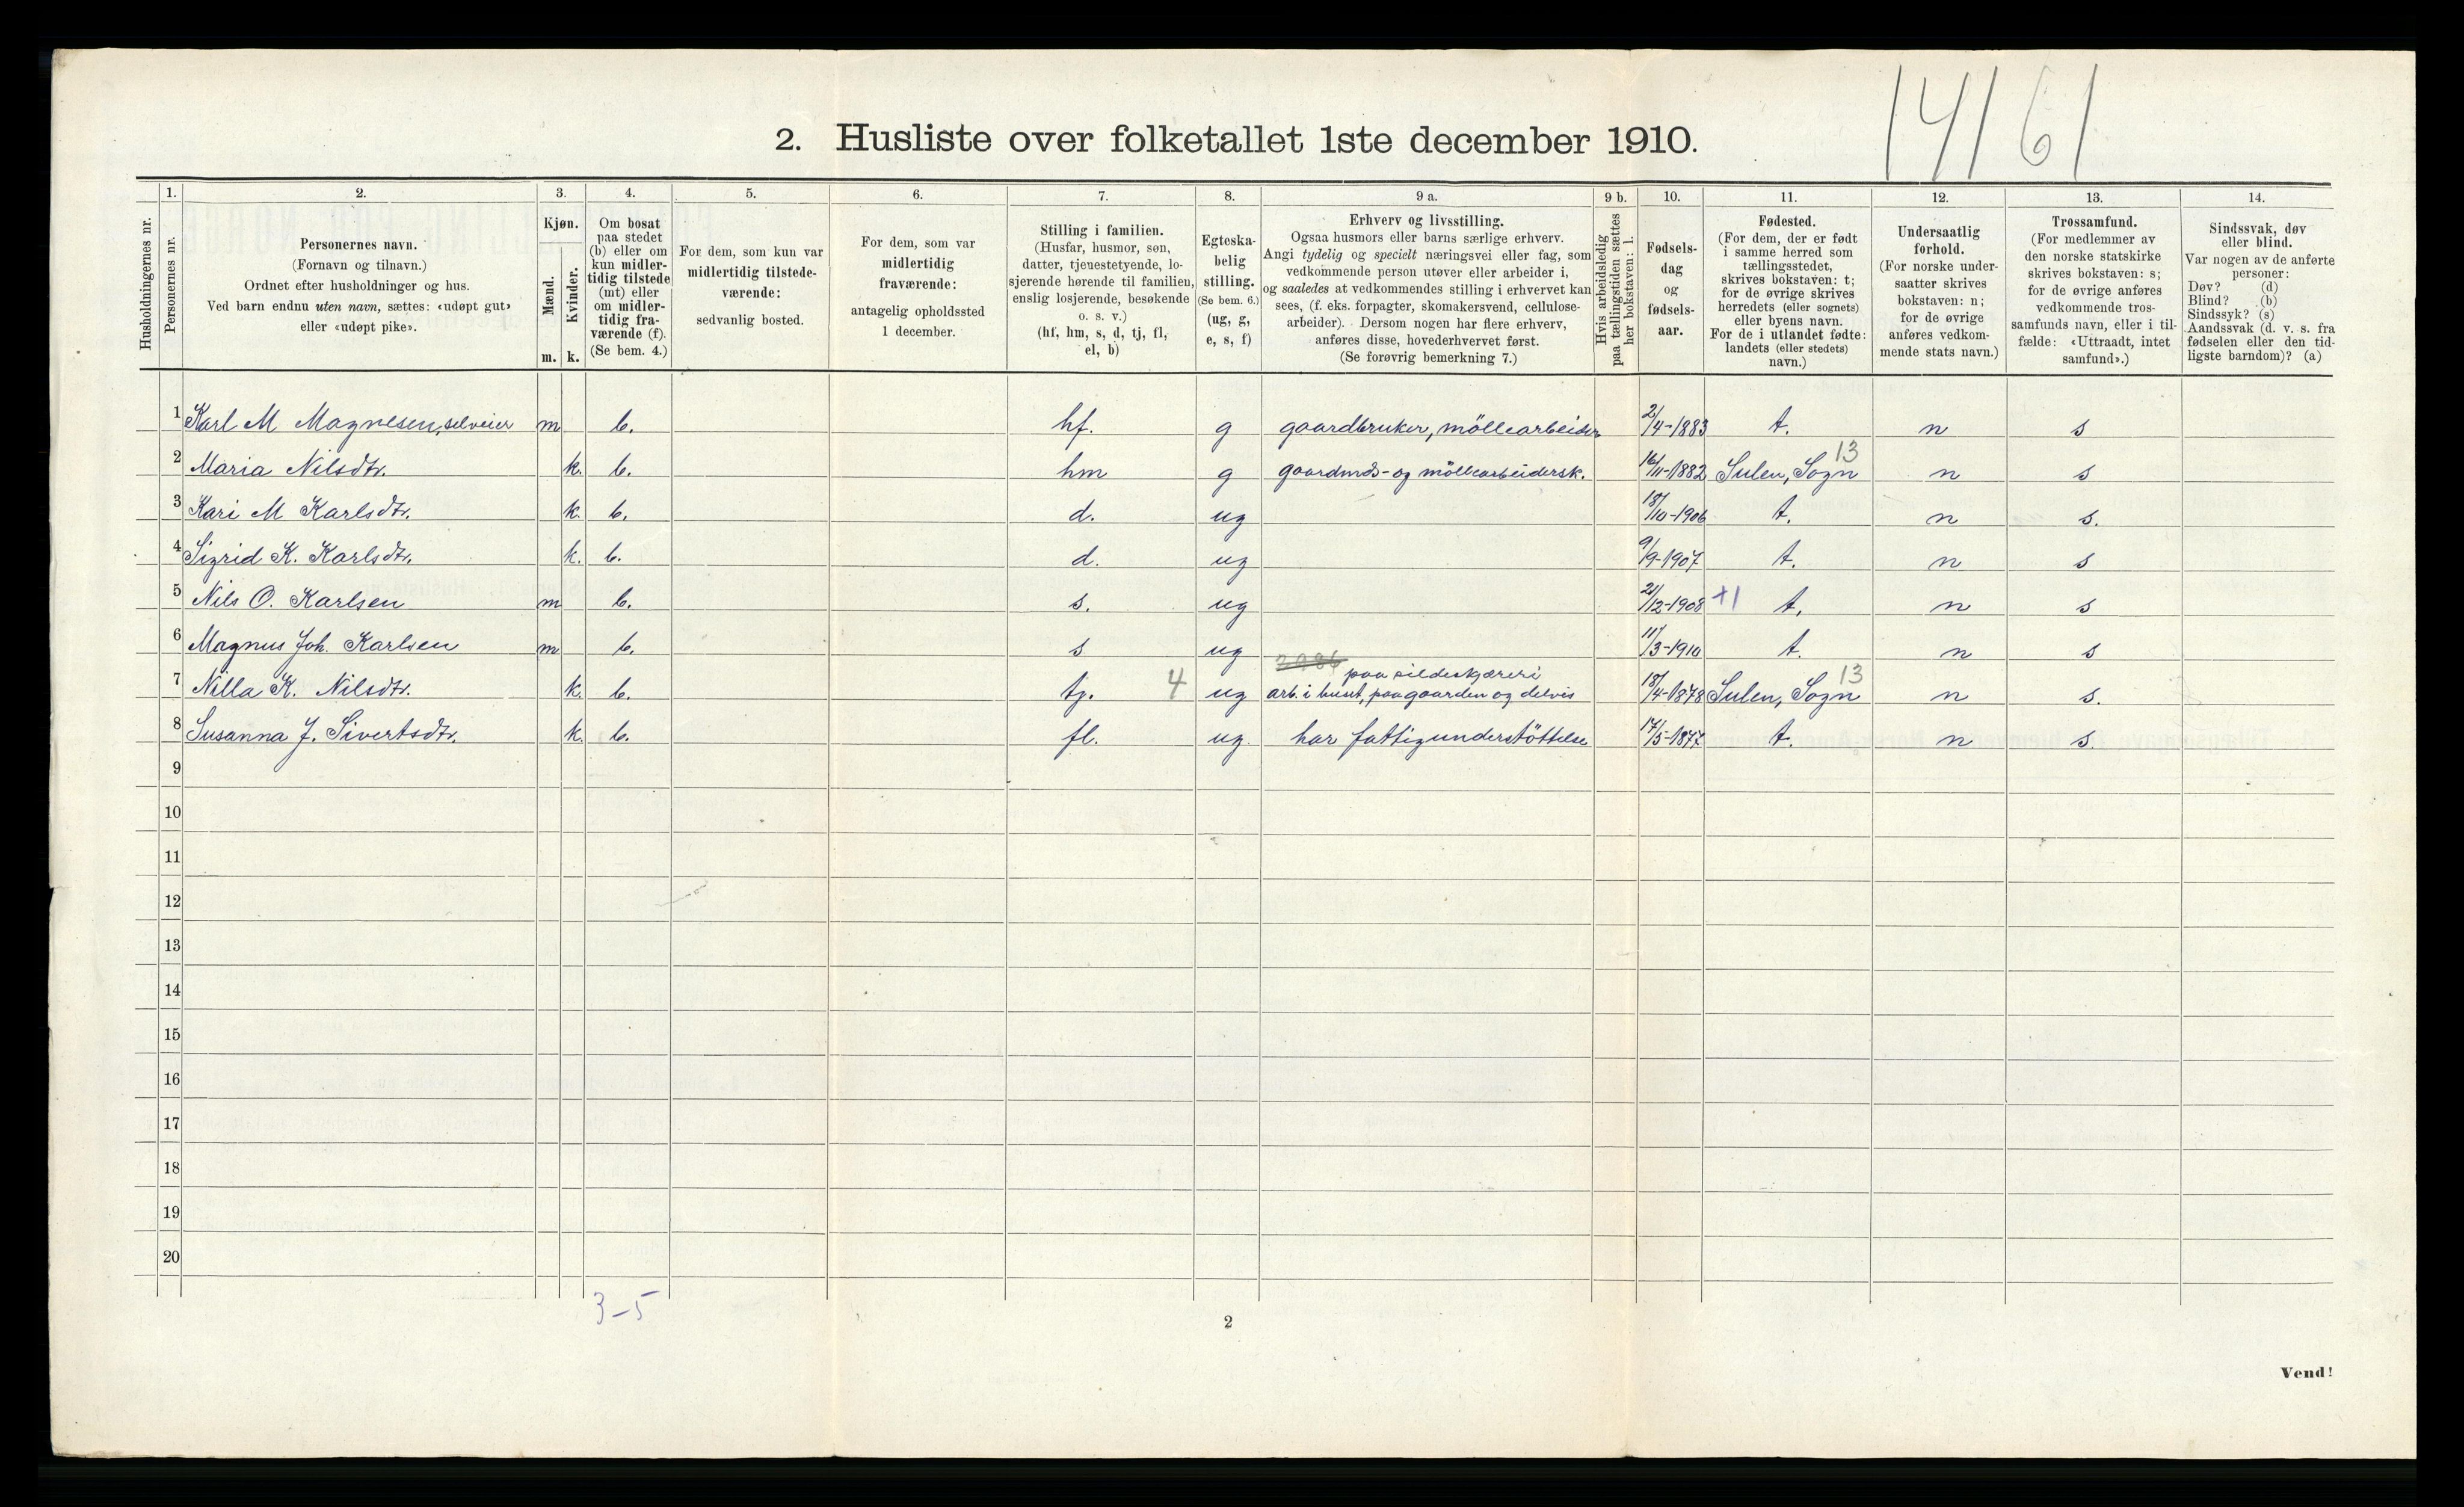 14161
2. Husliste over folketallet 1ste december 1910.
Husholdningernes nr.
1.
Personernes nr.
2.
Personernes navn.
(Fornavn og tilnavn.)
Ordnet efter husholdninger og hus.
Ved barn endnu uten navn, sættes: «udøpt gut»
eller «udøpt pike».
3.
Kjøn.
Mænd.
Kvinder.
m. k.
4.
Om bosat
paa stedet
(b) eller om
kun midler-
tidig tilstede
(mt) eller
om midler-
tidig fra-
værende (f).
(Se bem. 4.)
5.
For dem, som kun var
midlertidig tilstede-
værende:
sedvanlig bosted.
6.
For dem, som var
midlertidig
fraværende:
antagelig opholdssted
1 december.
7.
Stilling i familien.
(Husfar, husmor, søn,
datter, tjenestetyende, lo-
sjerende hørende til familien,
enslig losjerende, besøkende
o. s. v.)
(hf, hm, s, d, tj, fl,
el, b)
8.
Egteska-
belig
stilling.
(Se bem. 6.)
(ug, g,
e, s, f)
9 a.
Erhverv og livsstilling.
Ogsaa husmors eller barns særlige erhverv.
Angi tydelig og specielt næringsvei eller fag, som
vedkommende person utøver eller arbeider i,
og saaledes at vedkommendes stilling i erhvervet kan
sees, (f. eks. forpagter, skomakersvend, cellulose-
arbeider). Dersom nogen har flere erhverv,
anføres disse, hovederhvervet først.
(Se forøvrig bemerkning 7.)
9 b.
Hvis arbeidsledig
paa tællingstiden sættes
her bokstaven: l.
10.
Fødsels-
dag
og
fødsels-
aar.
11.
Fødested.
(For dem, der er født
i samme herred som
tællingsstedet,
skrives bokstaven: t;
for de øvrige skrives
herredets (eller sognets)
eller byens navn.
For de i utlandet fødte:
landets (eller stedets)
navn.)
12.
Undersaatlig
forhold.
(For norske under-
saatter skrives
bokstaven: n;
for de øvrige
anføres vedkom-
mende stats navn.)
13.
Trossamfund.
(For medlemmer av
den norske statskirke
skrives bokstaven: s;
for de øvrige anføres
vedkommende tros-
samfunds navn, eller i til-
fælde: «Uttraadt, intet
samfund».)
14.
Sindssvak, døv
eller blind.
Var nogen av de anførte
personer:
Døv? (d)
Blind? (b)
Sindssyk? (s)
Aandssvak (d. v. s. fra
fødselen eller den tid-
ligste barndom)? (a)
1 Karl M Magnesen, selveier m b. hf. g gaardbruker, möllearbeider 2/4-1883 t. n s
2 Maria Nilsdtr. k. b. hm g gaardmds- og möllearbeidersk. 16/11-1882 Sulen, Sogn 13 n s
3 Kari M Karlsdtr. k. b. d. ug 18/10-1906 t. n s.
4 Sigrid K. Karlsdtr. k. b. d. ug 9/9-1907 t. n s
5 Nils O. Karlsen m b. s. ug 21/12-1908 +1 t. n s
6 Magnus Joh. Karlsen m b. s ug 11/3-1910 t. n s
paa sildeskjæreri
7 Nilla K. Nilsdtr. k. b. tj. 4 ug arb. i huset, paa gaarden og delvis 18/4-1878 Sulen, Sogn 13 n s.
8 Susanna J. Sivertsdtr. k. b. fl. ug. har fattigunderstöttelse 17/5-1877 t. n s
9
10
11
12
13
14
15
16
17
18
19
20
3-5
2
Vend!